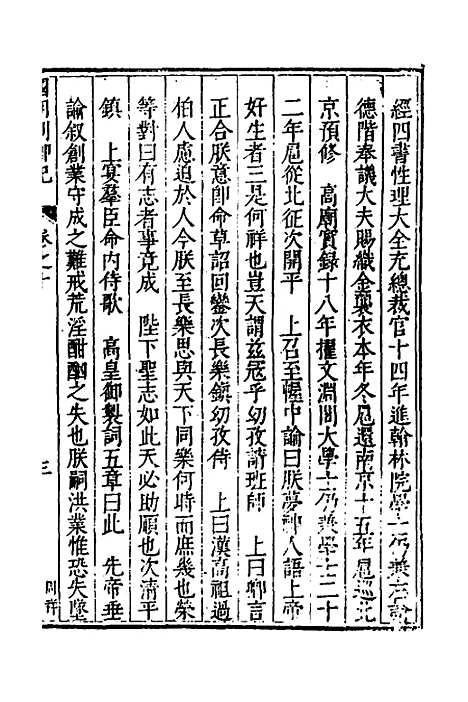 經四書性理大全充總裁官十四年進翰林院學士仍兼右諭
德階奉議大夫賜織金襲衣本年冬扈還南京十五年扈巡北
京預修　高廟實錄十八年擢文淵閣大學士仍兼學士二十
二年扈從北征次開平　上召至幄中諭曰朕夢神人語上帝
好生者三是何祥也豈天謂茲寇乎幼孜請班師　上曰卿言
正合朕意即命草詔回鑾次長樂鎮幼孜侍　上曰漢高祖過
伯人慮迫於人今朕至長樂思與天下同樂何時而庶幾也榮
等對曰有志者事竟成　陛下聖志如此天必助順也次清平
鎮　上宴羣臣命內侍歌　高皇御製詞五章曰此　先帝垂
諭叙創業守成之難戒荒淫酣酗之失也朕嗣洪業惟恐失墜
國朝列卿紀
卷之十
三